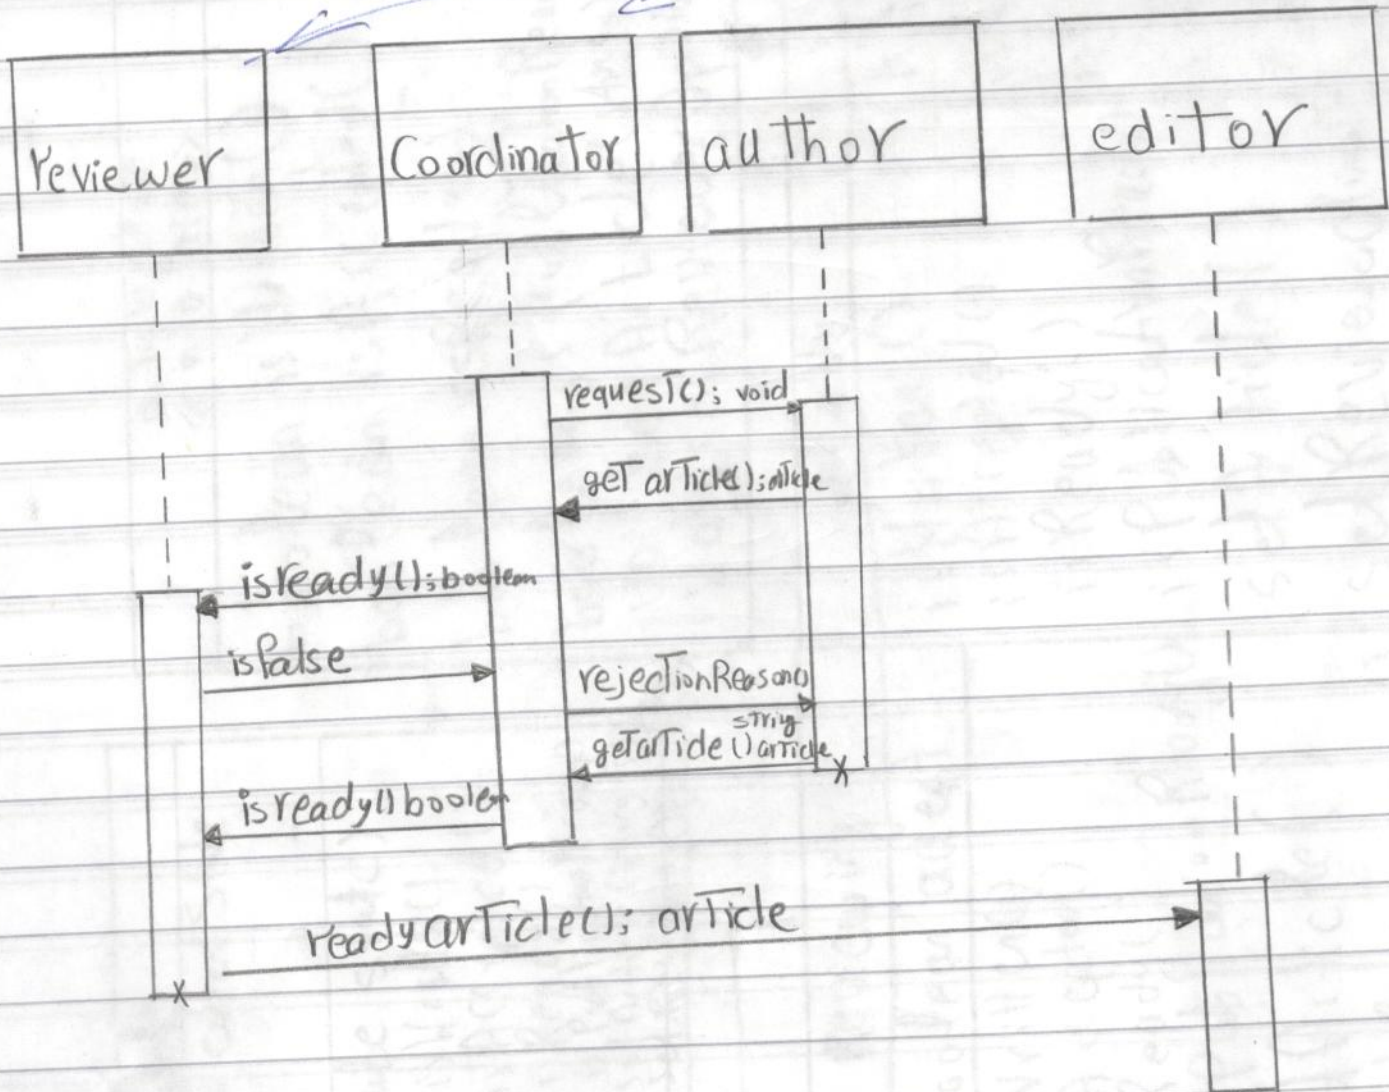 reviewer
Coordinator
author
editor
request(); void
getarticle(); article
isready(); boolean
isfalse
rejectionReason()
string
getarticle() article
isready() boolean
readyarticle(); article
x
x